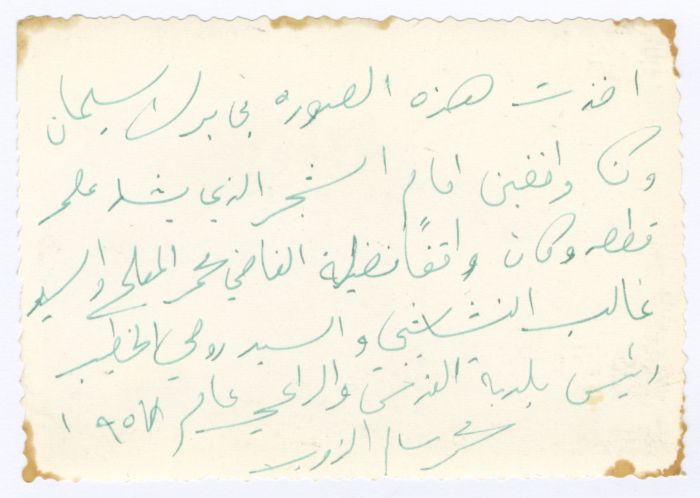 اخذت هذه الصوره في برك سليمان
وكنا واقفين امام الشجر الذي يشار على
قطعه وكان واقفاً فضيلة القاضي محمد المفلح والسيد
غالب النشاشيبي والسيد روحي الخطيب
رئيس بلدية القدس والراعي عام ١٩٥٧
محمد سالم الذويب